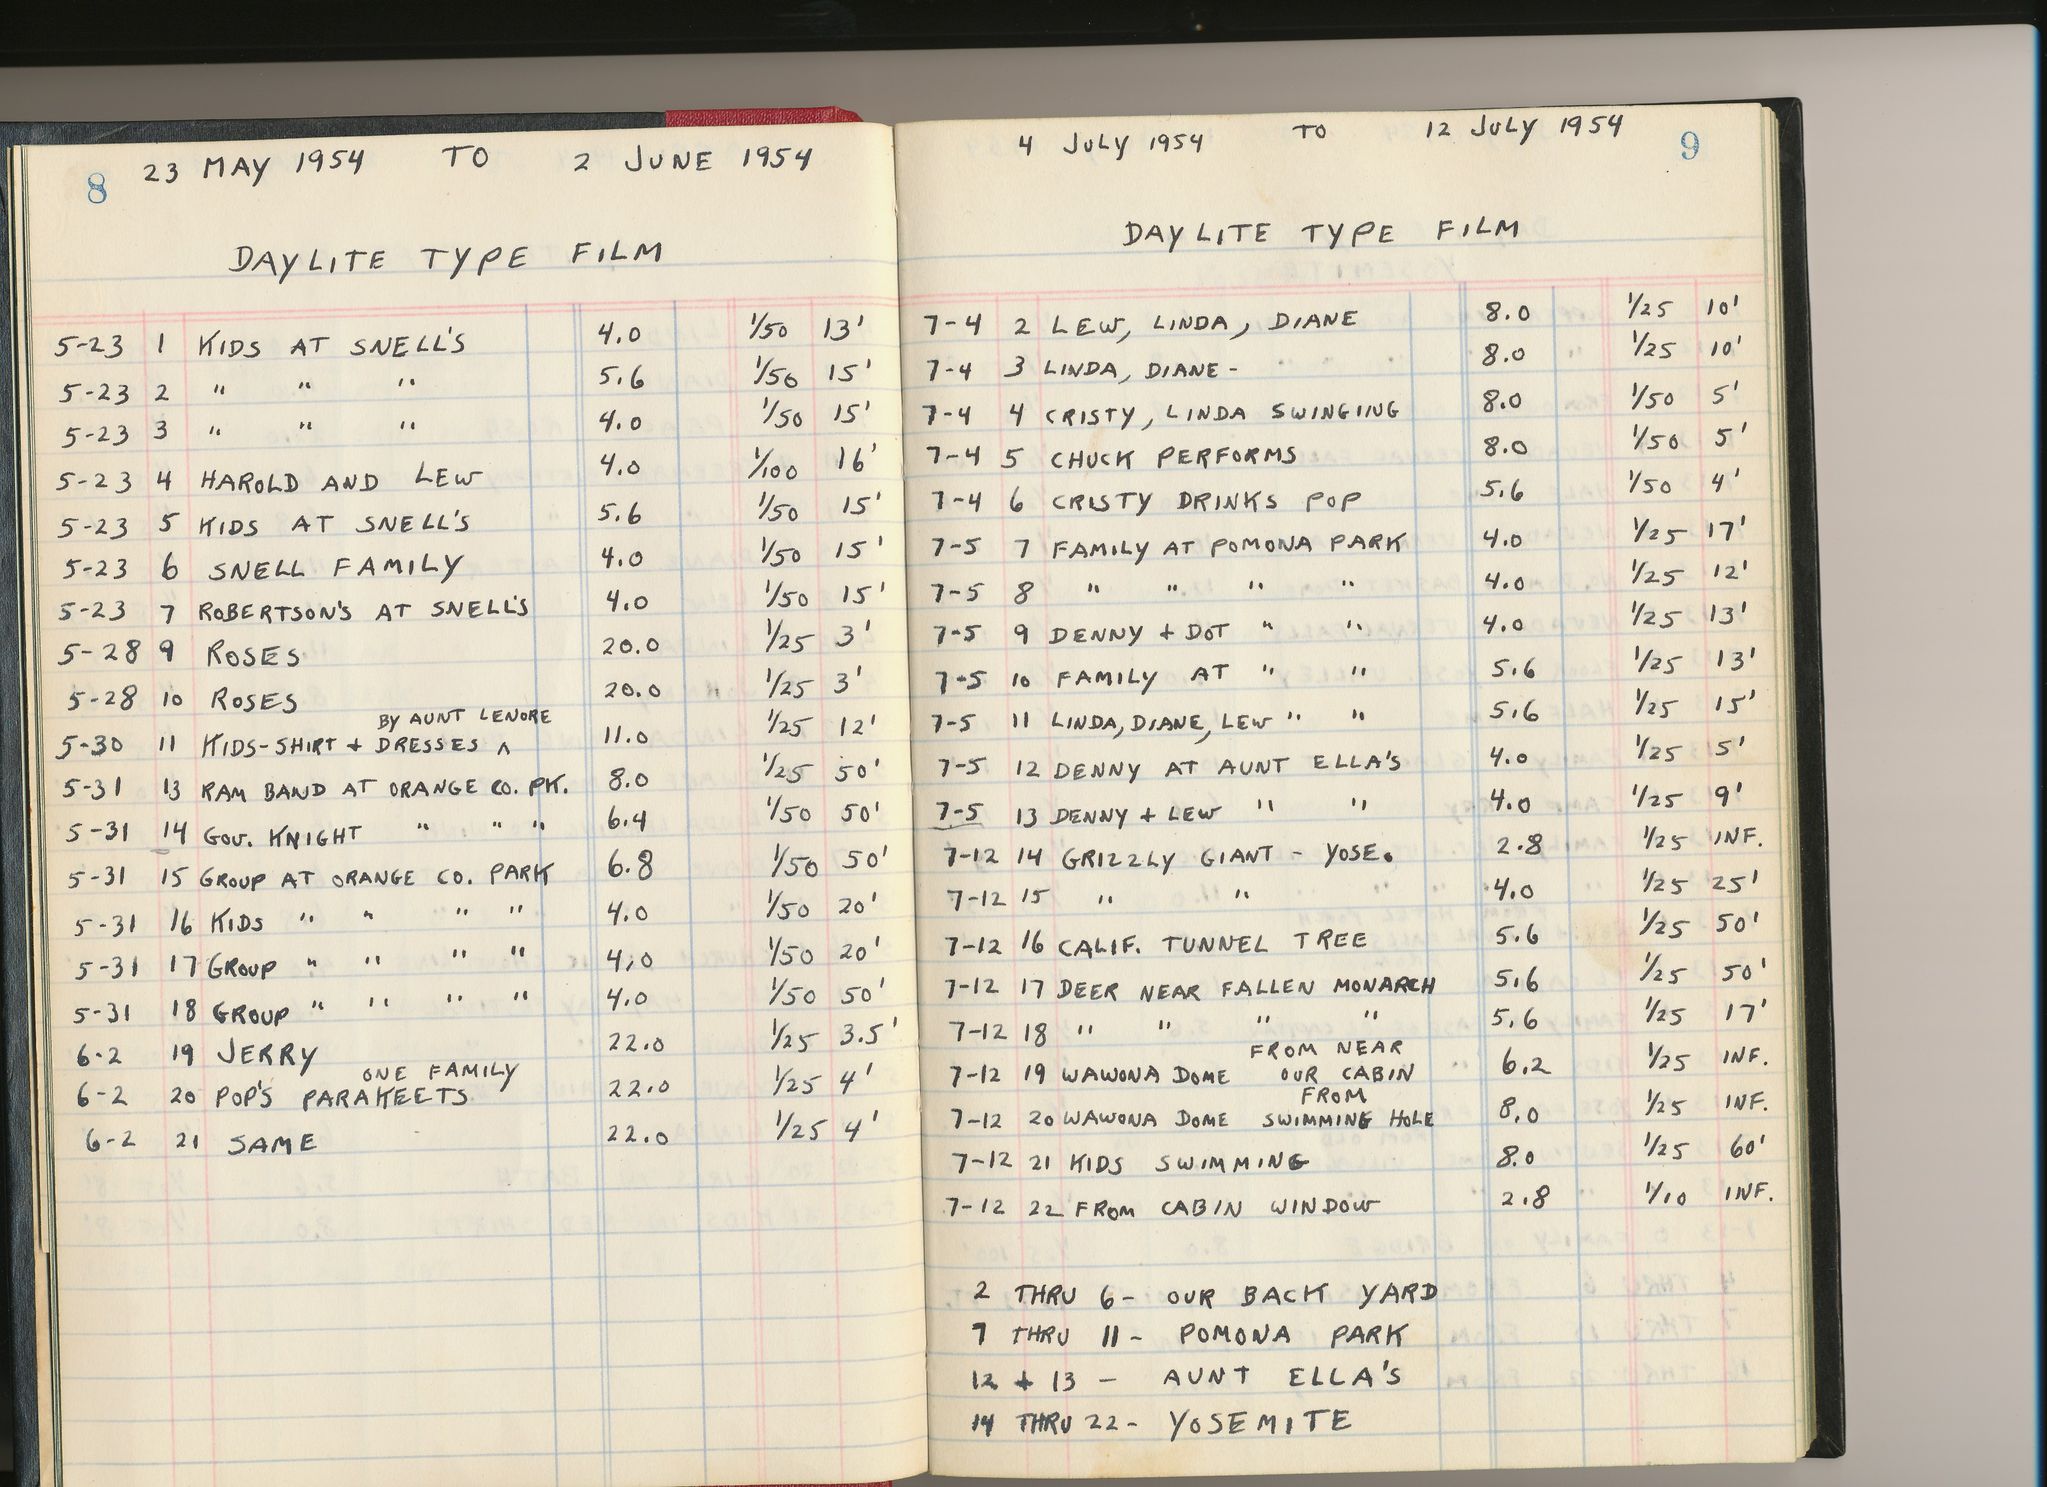 8
23 MAY 1954 TO 2 JUNE 1954
DAYLITE TYPE FILM
5-23 1 KIDS AT SNELL'S 4.0 1/50 13'
5-23 2 " " " 5.6 1/50 15'
5-23 3 " " " 4.0 1/50 15'
5-23 4 HAROLD AND LEW 4.0 1/100 16'
5-23 5 KIDS AT SNELL'S 5.6 1/50 15'
5-23 6 SNELL FAMILY 4.0 1/50 15'
5-23 7 ROBERTSON'S AT SNELL'S 4.0 1/50 15'
5-28 9 ROSES 20.0 1/25 3'
5-28 10 ROSES 20.0 1/25 3'
BY AUNT LENORE
5-30 11 KIDS-SHIRT + DRESSES ^ 11.0 1/25 12'
5-31 13 RAM BAND AT ORANGE CO. PK. 8.0 1/25 50'
5-31 14 GOV. KNIGHT " " " 6.4 1/50 50'
5-31 15 GROUP AT ORANGE CO. PARK 6.8 1/50 50'
5-31 16 KIDS " " " " 4.0 1/50 20'
5-31 17 GROUP " " " " 4.0 1/50 20'
5-31 18 GROUP " " " " 4.0 1/50 50'
6-2 19 JERRY 22.0 1/25 3.5'
ONE FAMILY
6-2 20 POP'S PARAKEETS 22.0 1/25 4'
6-2 21 SAME 22.0 1/25 4'
4 JULY 1954 TO 12 JULY 1954
9
DAYLITE TYPE FILM
7-4 2 LEW, LINDA, DIANE 8.0 1/25 10'
7-4 3 LINDA, DIANE- 8.0 1/25 10'
7-4 4 CRISTY, LINDA SWINGIING 8.0 1/50 5'
7-4 5 CHUCK PERFORMS 8.0 1/50 5'
7-4 6 CRISTY DRINKS POP 5.6 1/50 4'
7-5 7 FAMILY AT POMONA PARK 4.0 1/25 17'
7-5 8 " " " " 4.0 1/25 12'
7-5 9 DENNY + DOT " " 4.0 1/25 13'
7-5 10 FAMILY AT " " 5.6 1/25 13'
7-5 11 LINDA, DIANE, LEW " " 5.6 1/25 15'
7-5 12 DENNY AT AUNT ELLA'S 4.0 1/25 5'
7-5 13 DENNY + LEW " " 4.0 1/25 9'
7-12 14 GRIZZLY GIANT - YOSE. 2.8 1/25 INF.
7-12 15 " " 4.0 1/25 25'
7-12 16 CALIF. TUNNEL TREE 5.6 1/25 50'
7-12 17 DEER NEAR FALLEN MONARCH 5.6 1/25 50'
7-12 18 " " " " 5.6 1/25 17'
FROM NEAR
7-12 19 WAWONA DOME OUR CABIN 6.2 1/25 INF.
FROM
7-12 20 WAWONA DOME SWIMMING HOLE 8.0 1/25 INF.
7-12 21 KIDS SWIMMING 8.0 1/25 60'
7-12 22 FROM CABIN WINDOW 2.8 1/10 INF.
2 THRU 6- OUR BACK YARD
7 THRU 11- POMONA PARK
12 + 13 - AUNT ELLA'S
14 THRU 22- YOSEMITE